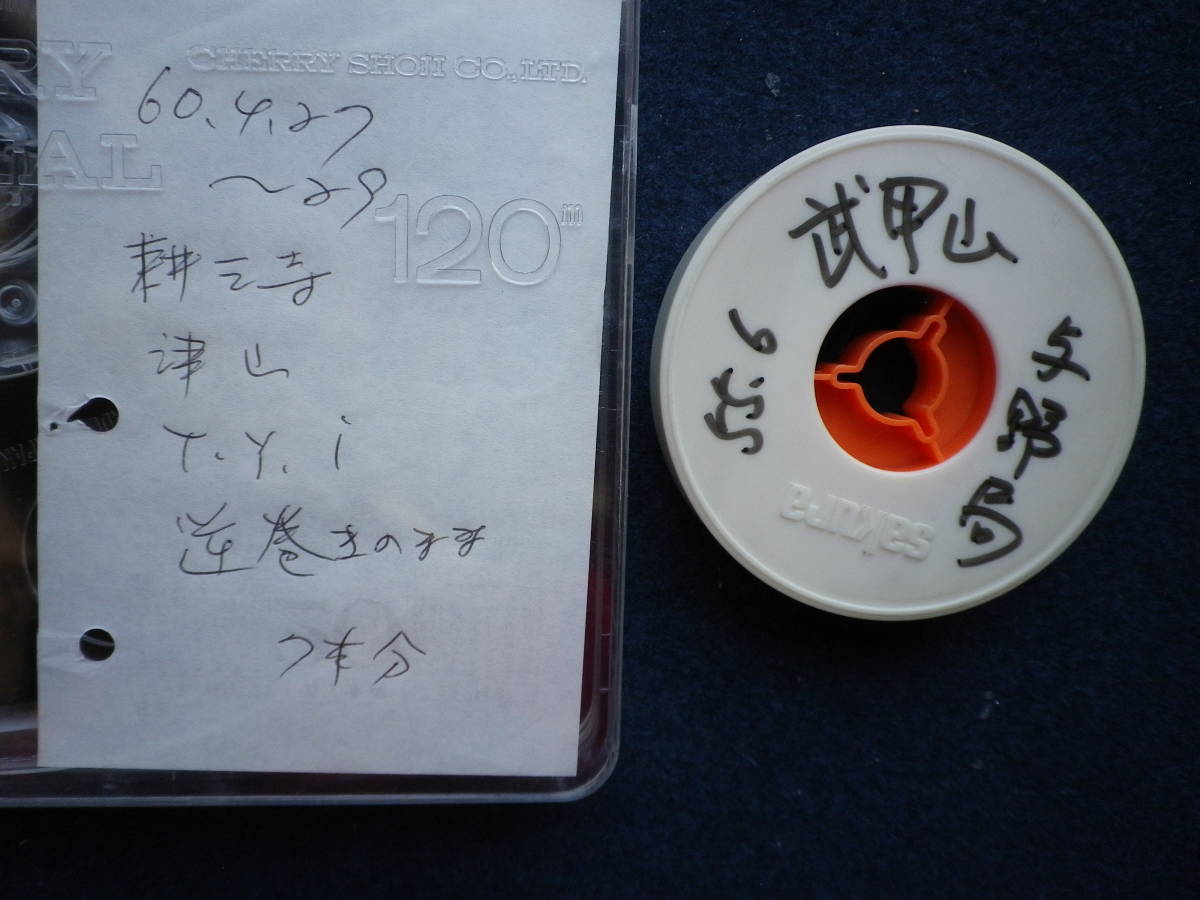 CHERRY SHOJI CO.,LTD.
RY
IAL
120m
60.4.27
～29
耕三寺
津山
T.Y.i
逆巻きのまま
7本分
武甲山
与野局
55.6
sakura